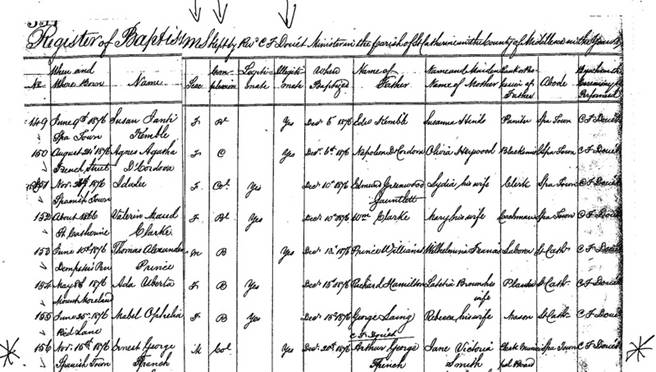 Register of Baptisms kept by Rev. C F Douët Minister in the Parish of St Catherine in the County of Middlesex in the
No. When and Where Born Name Sex Com-plexion Legiti-mate Illegiti-mate When Baptized Name of Father Name and Maiden Name of Mother Father Abode By whom Ceremony Performed
149 June 9th 1876 Spa Town Susan Jane Kemble F Yes Dec 6 1876 Susanna Hinds Spa Town C F Douët
150 August 21 1876 French Street Agnes Agatha D'Cordova F C Yes Dec 6th 1876 Napoleon D'Cordova Olivia Heywood Spa Town C F Douët
151 Nov. 1876 Spanish Town F Col. Yes Dec 10th 1876 Edmund Greenwood Gauntlett Lydia, his wife Clerk Spa Town C F Douët
152 About 1866 St. Catherine Valeria Maud Clarke F Bl Yes Dec 10th 1876 Wm Clarke Mary, his wife Coachman Spa Town C F Douët
153 June 10th 1876 Pen Thomas Alexander Prince M B Yes Dec 13th 1876 Prince Williams Wilhelmina Francis Laborer St Cath. C F Douët
154 May 1876 Mount Moreland Ada Alberta F B Yes Dec 15th 1876 Richard Hamilton wife Planter St Cath. C F Douët
155 June 25th 1876 Lane Mabel Ophelia F B Yes Dec 15th 1876 George Laing Rebecca, his wife Mason St Cath. C F Douët
C F Douët
156 Nov. 15th 1876 Spanish Town Ernest George French M Col. Yes Dec 20th 1876 Arthur George French Jane Victoria Smith Clerk Spa Town C F Douët